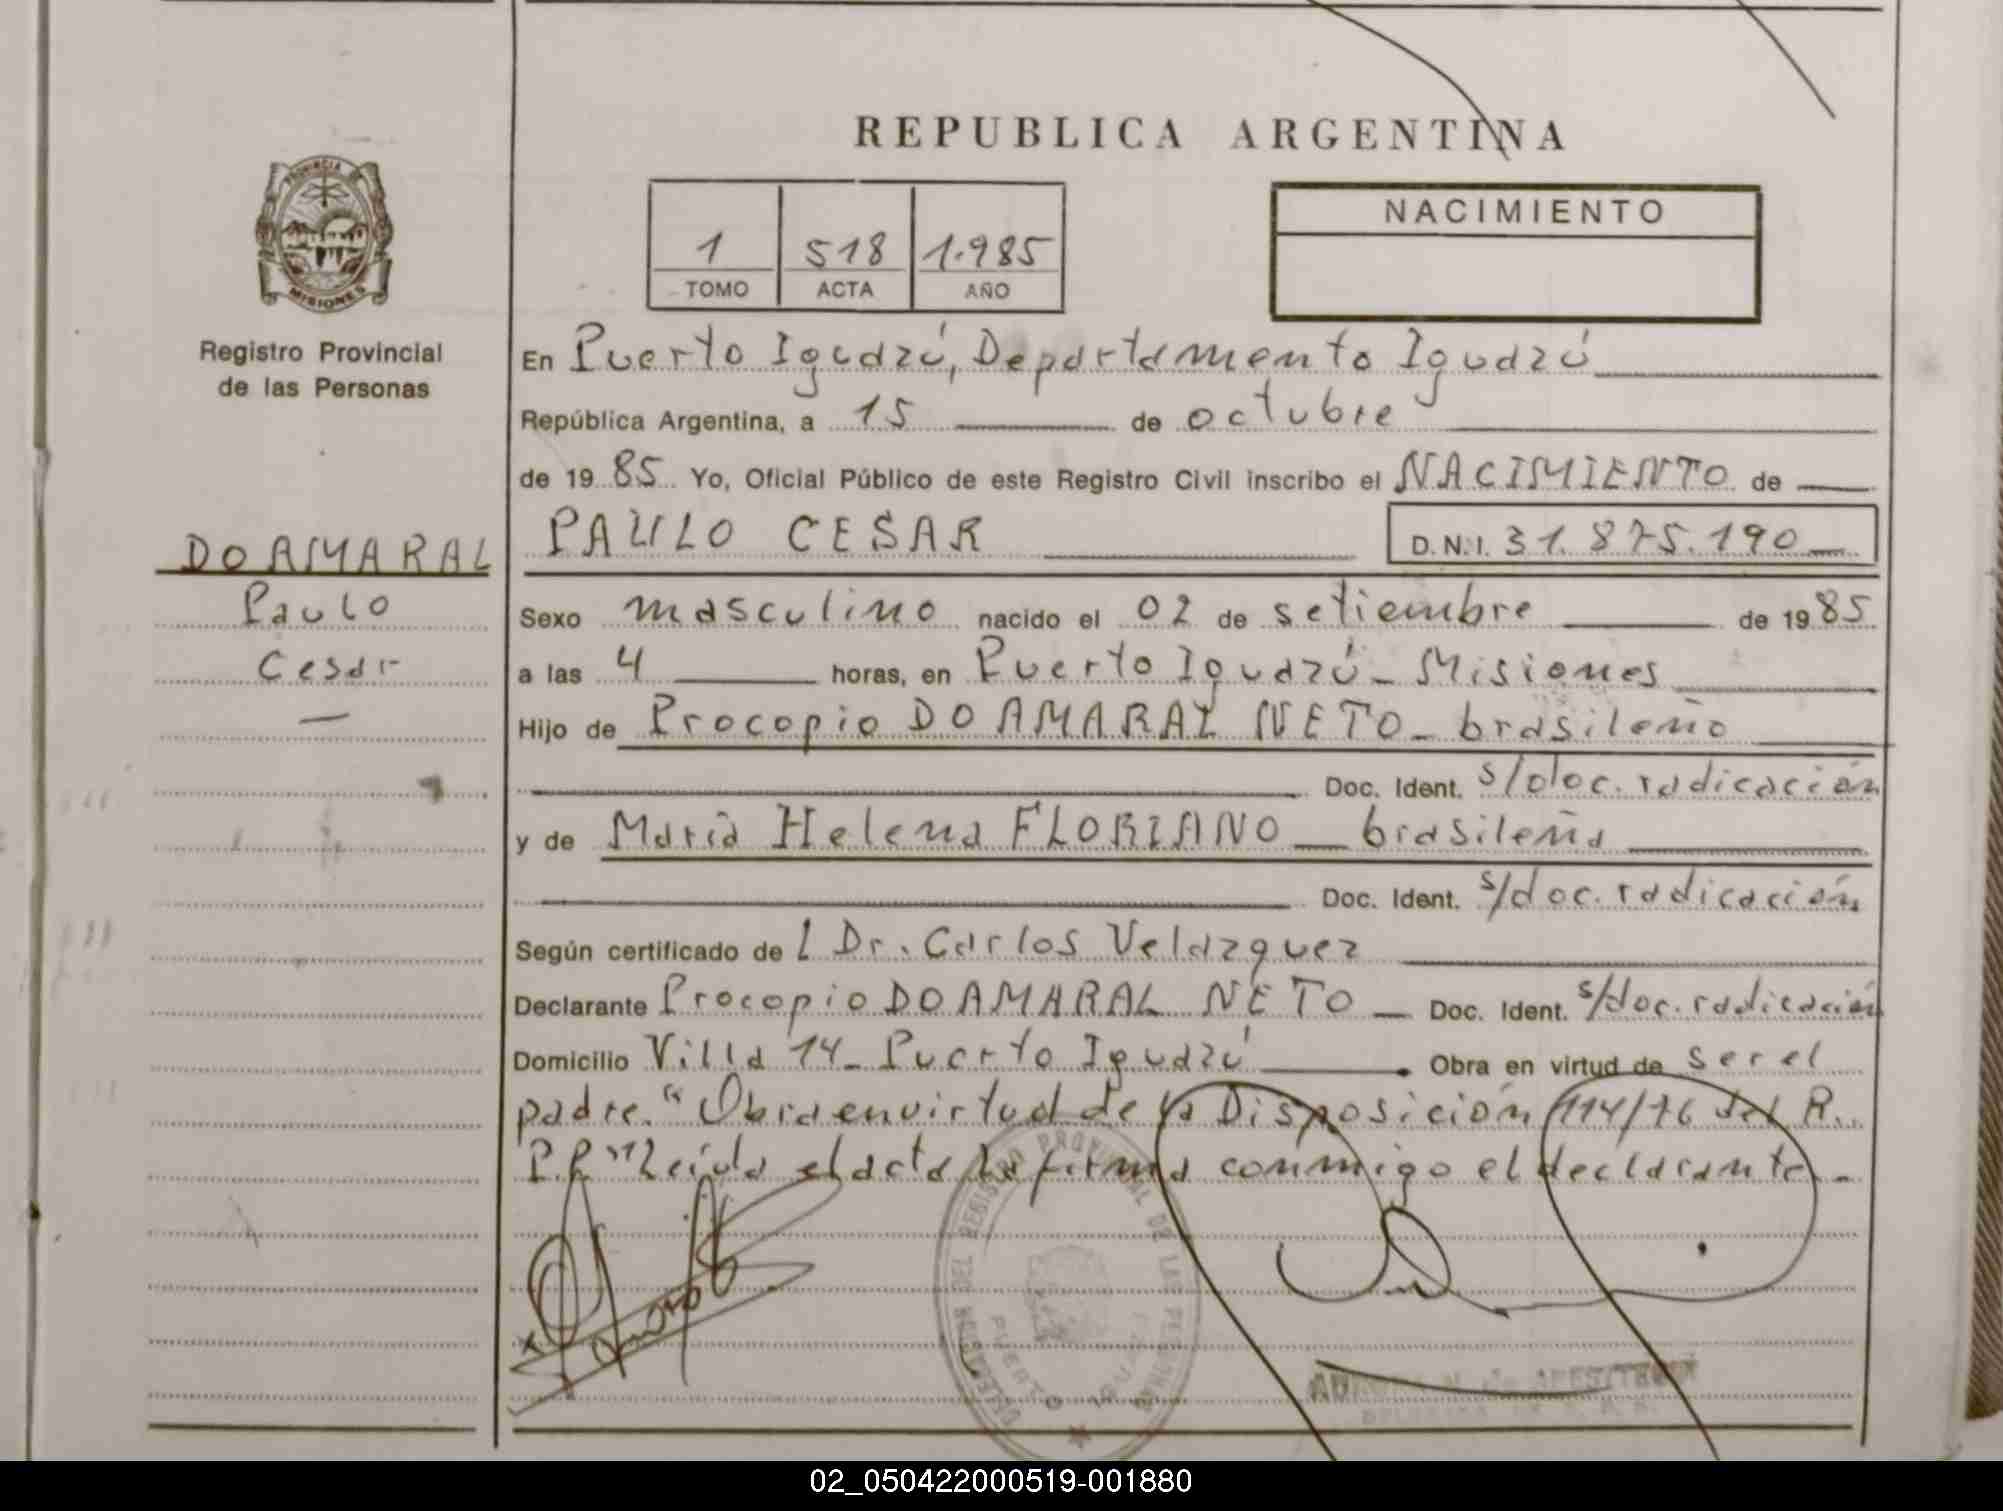 REPUBLICA ARGENTINA
PROVINCIA DE
MISIONES
Registro Provincial
de las Personas
1 518 1.985
TOMO ACTA AÑO
NACIMIENTO
En Puerto Iguazú, Departamento Iguazú
República Argentina, a 15 de octubre
de 1985 Yo, Oficial Público de este Registro Civil inscribo el NACIMIENTO de
PAULO CESAR D.N.I. 31.875.190
DO AMARAL
Paulo
Cesar
Sexo masculino nacido el 02 de setiembre de 1985
a las 4 horas, en Puerto Iguazú - Misiones
Hijo de Procopio DO AMARAL NETO - brasileño
Doc. Ident. s/doc. radicación
y de María Helena FLORIANO brasileña
Doc. Ident. s/doc. radicación
Según certificado del Dr. Carlos Velazquez
Declarante Procopio DO AMARAL NETO Doc. Ident. s/doc. radicación
Domicilio Villa 14 - Puerto Iguazú. Obra en virtud de ser el
padre. "Obra en virtud de la Disposición 114/76 del R.
P.P" Leída el acta la firma conmigo el declarante.-
DEL REGISTRO PROVINCIAL DE LAS PERSONAS
PUERTO IGUAZU
02_050422000519-001880